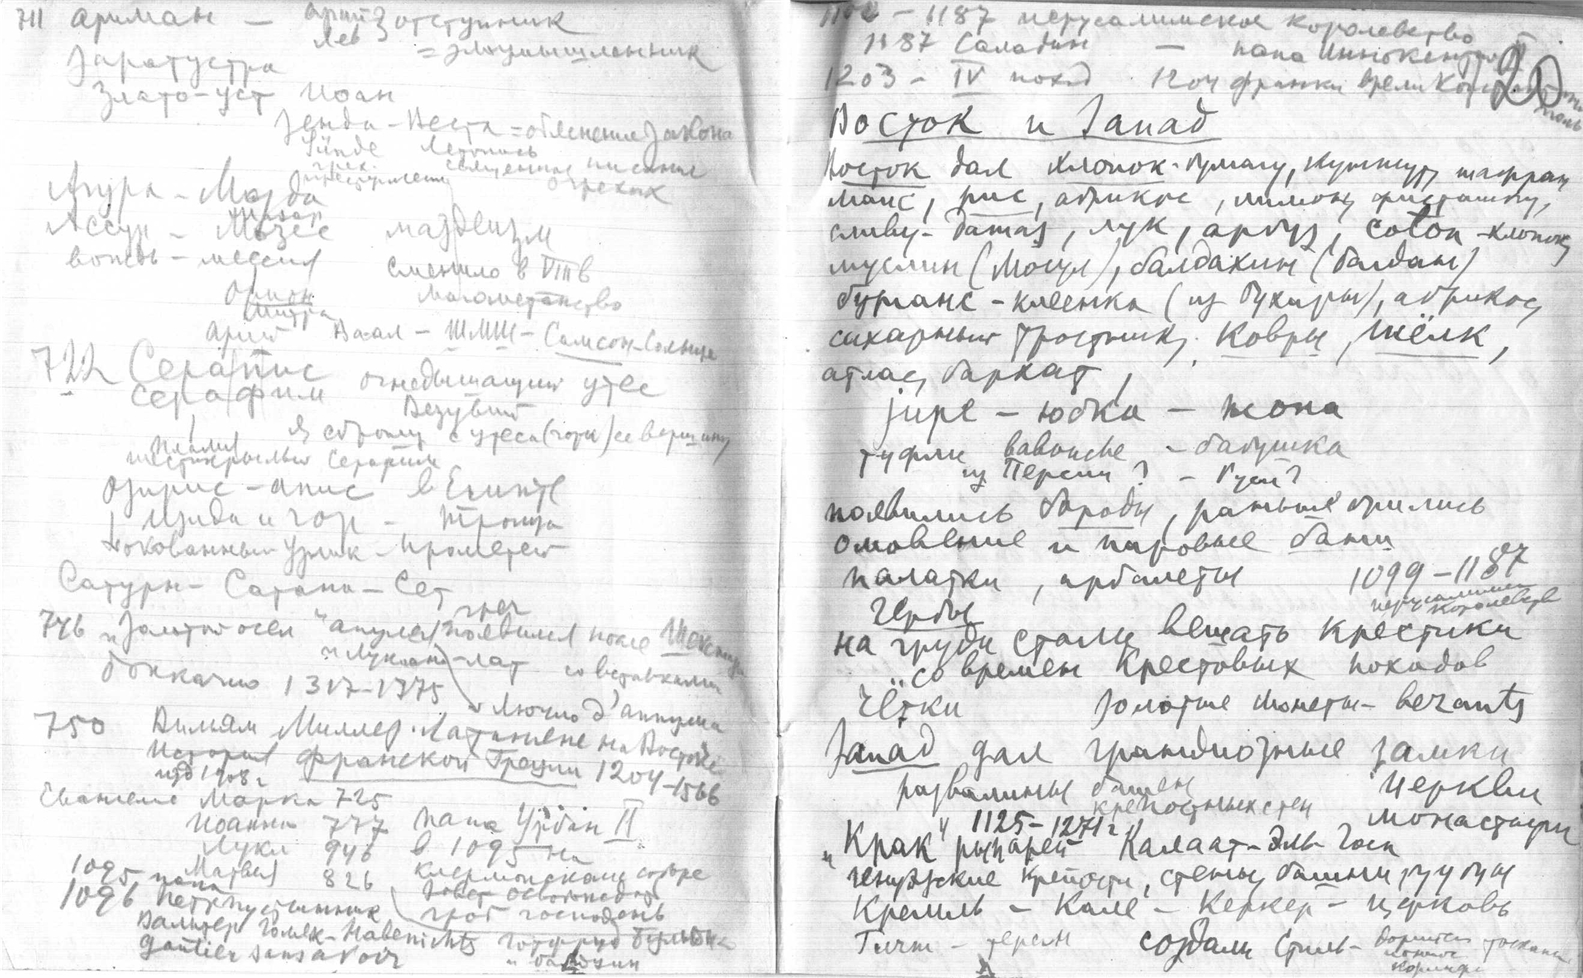 711 ариман — арий } отступник
лев = злоумышленник
Заратустра
Злато-уст Иоан
Зенда-Веста = объяснение закона
Sünde Летопись
грех священное писание
о грехах
Агура - Мазда
Ассур - Мозес маздеизм
вождь - мессия сменило в VIII в
Орион магометанство
Митра
арий Ваал - ШМШ - Самсон-Солнце
722 Серапис огнедышащий утес
Серафим Везувий
Я сброшу с утеса (горы) се вершину
пламя
шестикрылый Серафим
Озирис - апис в Египте
Изида и гор - троица
Прокованный узник - Прометей
Сатурн - Сатана - Сет
746 "Золотой осел" апулея грек появился после
"Лукиана - лат со вставками
боккачио 1317-1775
Лючио d'аппулиа
750 Вильям Миллер. Латиняне на Востоке
История франкской Греции 1204-1566
изд 1908 г
Евангелие Марка 725
Иоанна 777 папа Урбан II
Луки 946 в 1095 на
Матвея 826 клермонском соборе
1095 папа завет освобождать
1096 Петр пустынник гроб господень
Вальтер Голяк - Habenichts готфрид Бульона
gautier sans avoir " балдуин
1187 иерусалимское королевство
1187 Саладин — папа Иннокентий
1203 - IV поход 1204 франки взяли Константинополь
20
Восток и Запад
Восток дал хлопок-бумагу, кунжут, шафран
маис, рис, абрикос, лимон, фисташку,
сливу-дамаз, лук, арбуз, coton - хлопок
муслин (Мосул), балдахин (багдат)
бугранс - клеенка (из бухары), абрикос,
сахарный тростник, ковры, шёлк,
атлас, бархат,
jupe - юбка - жопа
туфли babouche - бабушка
из Персии? - Руси?
появились бороды, раньше брились
омовение и паровые бани
палатки, арбалеты 1099-1187
гербы иерусалимск королевств
на груди стали вешать крестики
со времен крестовых походов
чётки золотые монеты - bezants
Запад дал грандиозные замки
развалины башен церкви
крепостных стен монастыри
1125-1271 г.
"Крак" рыцарей Калаат-Эль-Госн
генуэзские крепости, стены, башни,
Кремль - Кале - Керкер - церковь
терем создали стиль -